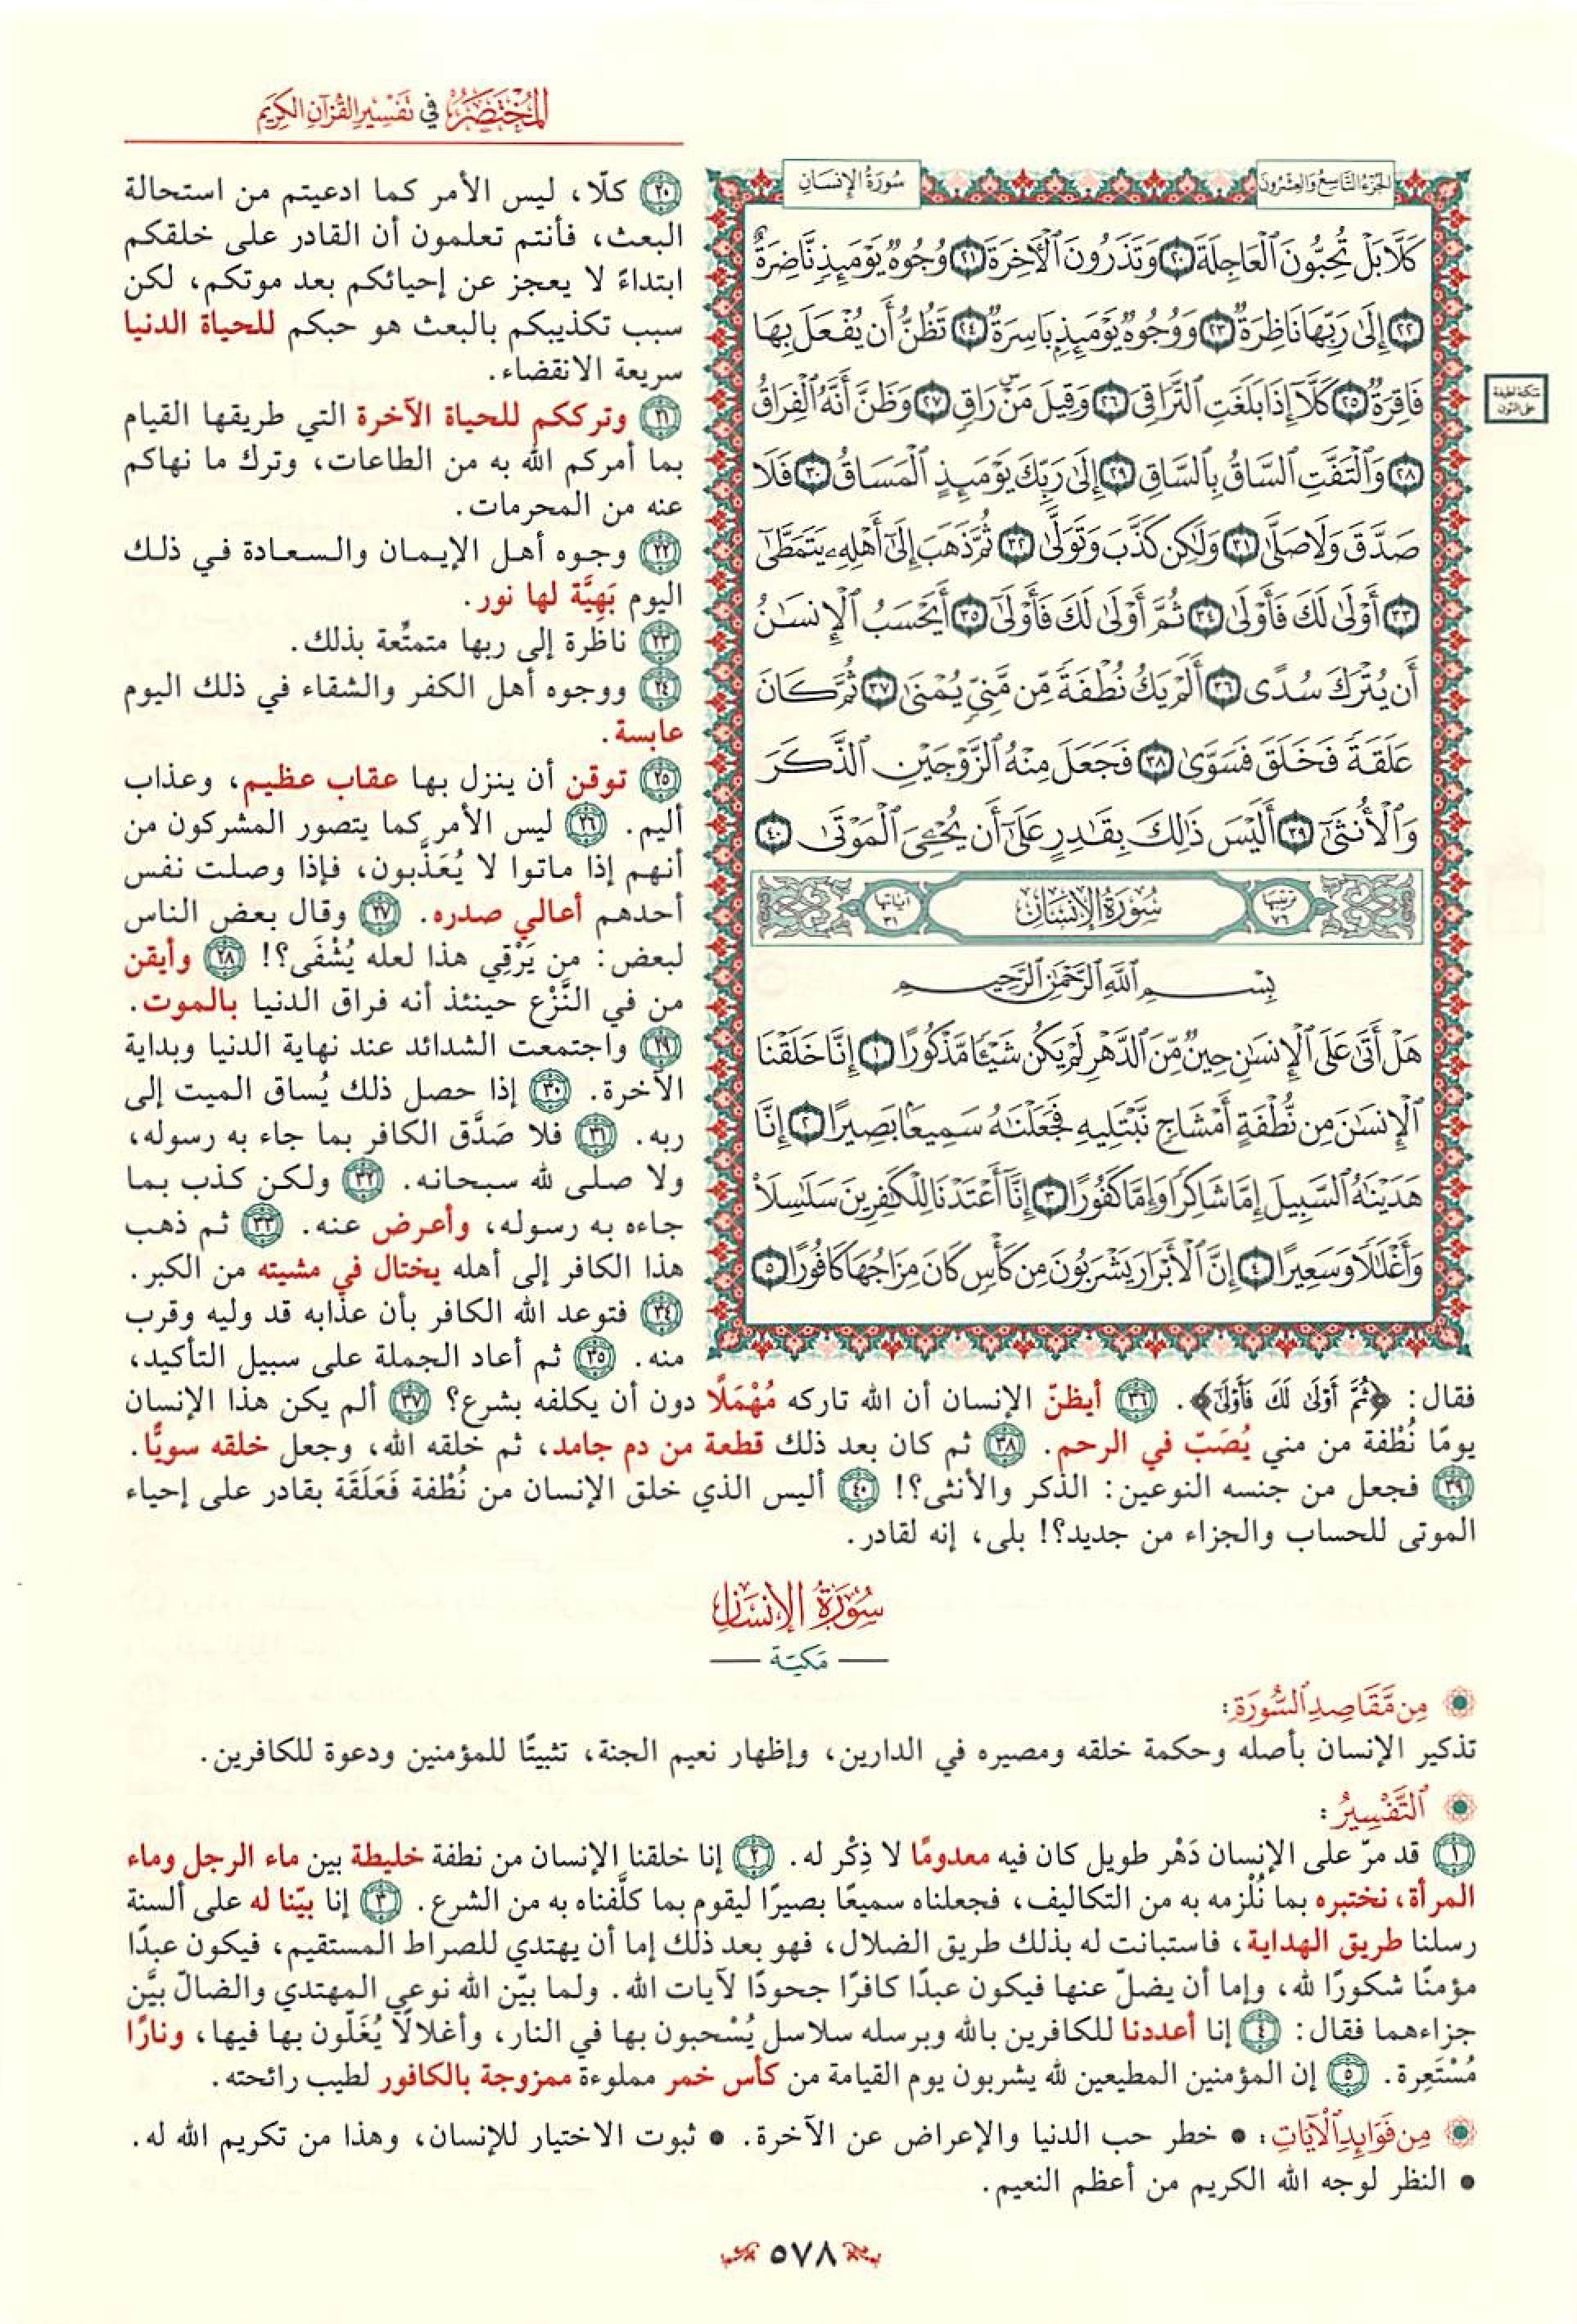 المختصر في تفسير القرآن الكريم
الجزء التاسع والعشرون
سورة الإنسان
كَلَّا بَلْ تُحِبُّونَ ٱلْعَاجِلَةَ ٢٠ وَتَذَرُونَ ٱلْأَخِرَةَ ٢١ وُجُوهٌ يَوْمَئِذٍ نَّاضِرَةٌ
٢٢ إِلَىٰ رَبِّهَا نَاظِرَةٌ ٢٣ وَوُجُوهٌ يَوْمَئِذٍ بَاسِرَةٌ ٢٤ تَظُنُّ أَن يُفْعَلَ بِهَا
فَاقِرَةٌ ٢٥ كَلَّآ إِذَا بَلَغَتِ ٱلتَّرَاقِىَ ٢٦ وَقِيلَ مَنْۜ رَاقٍ ٢٧ وَظَنَّ أَنَّهُ ٱلْفِرَاقُ
٢٨ وَٱلْتَفَّتِ ٱلسَّاقُ بِٱلسَّاقِ ٢٩ إِلَىٰ رَبِّكَ يَوْمَئِذٍ ٱلْمَسَاقُ ٣٠ فَلَا
صَدَّقَ وَلَا صَلَّىٰ ٣١ وَلَٰكِن كَذَّبَ وَتَوَلَّىٰ ٣٢ ثُمَّ ذَهَبَ إِلَىٰٓ أَهْلِهِۦ يَتَمَطَّىٰٓ
٣٣ أَوْلَىٰ لَكَ فَأَوْلَىٰ ٣٤ ثُمَّ أَوْلَىٰ لَكَ فَأَوْلَىٰٓ ٣٥ أَيَحْسَبُ ٱلْإِنسَٰنُ
أَن يُتْرَكَ سُدًى ٣٦ أَلَمْ يَكُ نُطْفَةً مِّن مَّنِىٍّ يُمْنَىٰ ٣٧ ثُمَّ كَانَ
عَلَقَةً فَخَلَقَ فَسَوَّىٰ ٣٨ فَجَعَلَ مِنْهُ ٱلزَّوْجَيْنِ ٱلذَّكَرَ
وَٱلْأُنثَىٰٓ ٣٩ أَلَيْسَ ذَٰلِكَ بِقَٰدِرٍ عَلَىٰٓ أَن يُحْـِۧىَ ٱلْمَوْتَىٰ ٤٠
ترتيبها ٧٦ سورة الإنسان آياتها ٣١
بِسْمِ ٱللَّهِ ٱلرَّحْمَٰنِ ٱلرَّحِيمِ
هَلْ أَتَىٰ عَلَى ٱلْإِنسَٰنِ حِينٌ مِّنَ ٱلدَّهْرِ لَمْ يَكُن شَيْـًٔا مَّذْكُورًا ١ إِنَّا خَلَقْنَا
ٱلْإِنسَٰنَ مِن نُّطْفَةٍ أَمْشَاجٍ نَّبْتَلِيهِ فَجَعَلْنَٰهُ سَمِيعًۢا بَصِيرًا ٢ إِنَّا
هَدَيْنَٰهُ ٱلسَّبِيلَ إِمَّا شَاكِرًا وَإِمَّا كَفُورًا ٣ إِنَّآ أَعْتَدْنَا لِلْكَٰفِرِينَ سَلَٰسِلَا۟
وَأَغْلَٰلًا وَسَعِيرًا ٤ إِنَّ ٱلْأَبْرَارَ يَشْرَبُونَ مِن كَأْسٍ كَانَ مِزَاجُهَا كَافُورًا ٥
سكتة لطيفة
على النون
٢٠ كلّا، ليس الأمر كما ادعيتم من استحالة
البعث، فأنتم تعلمون أن القادر على خلقكم
ابتداءً لا يعجز عن إحيائكم بعد موتكم، لكن
سبب تكذيبكم بالبعث هو حبكم للحياة الدنيا
سريعة الانقضاء.
٢١ وترككم للحياة الآخرة التي طريقها القيام
بما أمركم الله به من الطاعات، وترك ما نهاكم
عنه من المحرمات.
٢٢ وجوه أهل الإيمان والسعادة في ذلك
اليوم بَهِيَّة لها نور.
٢٣ ناظرة إلى ربها متمتِّعة بذلك.
٢٤ ووجوه أهل الكفر والشقاء في ذلك اليوم
عابسة.
٢٥ توقن أن ينزل بها عقاب عظيم، وعذاب
أليم. ٢٦ ليس الأمر كما يتصور المشركون من
أنهم إذا ماتوا لا يُعَذَّبون، فإذا وصلت نفس
أحدهم أعالي صدره. ٢٧ وقال بعض الناس
لبعض: من يَرْقِي هذا لعله يُشْفَى؟! ٢٨ وأيقن
من في النَّزْع حينئذ أنه فراق الدنيا بالموت.
٢٩ واجتمعت الشدائد عند نهاية الدنيا وبداية
الآخرة. ٣٠ إذا حصل ذلك يُساق الميت إلى
ربه. ٣١ فلا صَدَّق الكافر بما جاء به رسوله،
ولا صلى لله سبحانه. ٣٢ ولكن كذب بما
جاءه به رسوله، وأعرض عنه. ٣٣ ثم ذهب
هذا الكافر إلى أهله يختال في مشيته من الكبر.
٣٤ فتوعد الله الكافر بأن عذابه قد وليه وقرب
منه. ٣٥ ثم أعاد الجملة على سبيل التأكيد،
فقال: ﴿ثُمَّ أَوْلَىٰ لَكَ فَأَوْلَىٰٓ﴾. ٣٦ أيظنّ الإنسان أن الله تاركه مُهْمَلًا دون أن يكلفه بشرع؟ ٣٧ ألم يكن هذا الإنسان
يومًا نُطْفة من مني يُصَبّ في الرحم. ٣٨ ثم كان بعد ذلك قطعة من دم جامد، ثم خلقه الله، وجعل خلقه سويًّا.
٣٩ فجعل من جنسه النوعين: الذكر والأنثى؟! ٤٠ أليس الذي خلق الإنسان من نُطْفة فَعَلَقَة بقادر على إحياء
الموتى للحساب والجزاء من جديد؟! بلى، إنه لقادر.
سورة الإنسان
مكية
من مقاصد السورة:
تذكير الإنسان بأصله وحكمة خلقه ومصيره في الدارين، وإظهار نعيم الجنة، تثبيتًا للمؤمنين ودعوة للكافرين.
التفسير:
١ قد مرّ على الإنسان دَهْر طويل كان فيه معدومًا لا ذِكْر له. ٢ إنا خلقنا الإنسان من نطفة خليطة بين ماء الرجل وماء
المرأة، نختبره بما نُلْزمه به من التكاليف، فجعلناه سميعًا بصيرًا ليقوم بما كلَّفناه به من الشرع. ٣ إنا بيّنا له على ألسنة
رسلنا طريق الهداية، فاستبانت له بذلك طريق الضلال، فهو بعد ذلك إما أن يهتدي للصراط المستقيم، فيكون عبدًا
مؤمنًا شكورًا لله، وإما أن يضلّ عنها فيكون عبدًا كافرًا جحودًا لآيات الله. ولما بيّن الله نوعي المهتدي والضالّ بيَّن
جزاءهما فقال: ٤ إنا أعددنا للكافرين بالله وبرسله سلاسل يُسْحبون بها في النار، وأغلالًا يُغَلّون بها فيها، ونارًا
مُسْتَعِرة. ٥ إن المؤمنين المطيعين لله يشربون يوم القيامة من كأس خمر مملوءة ممزوجة بالكافور لطيب رائحته.
من فوائد الآيات: • خطر حب الدنيا والإعراض عن الآخرة. • ثبوت الاختيار للإنسان، وهذا من تكريم الله له.
• النظر لوجه الله الكريم من أعظم النعيم.
٥٧٨